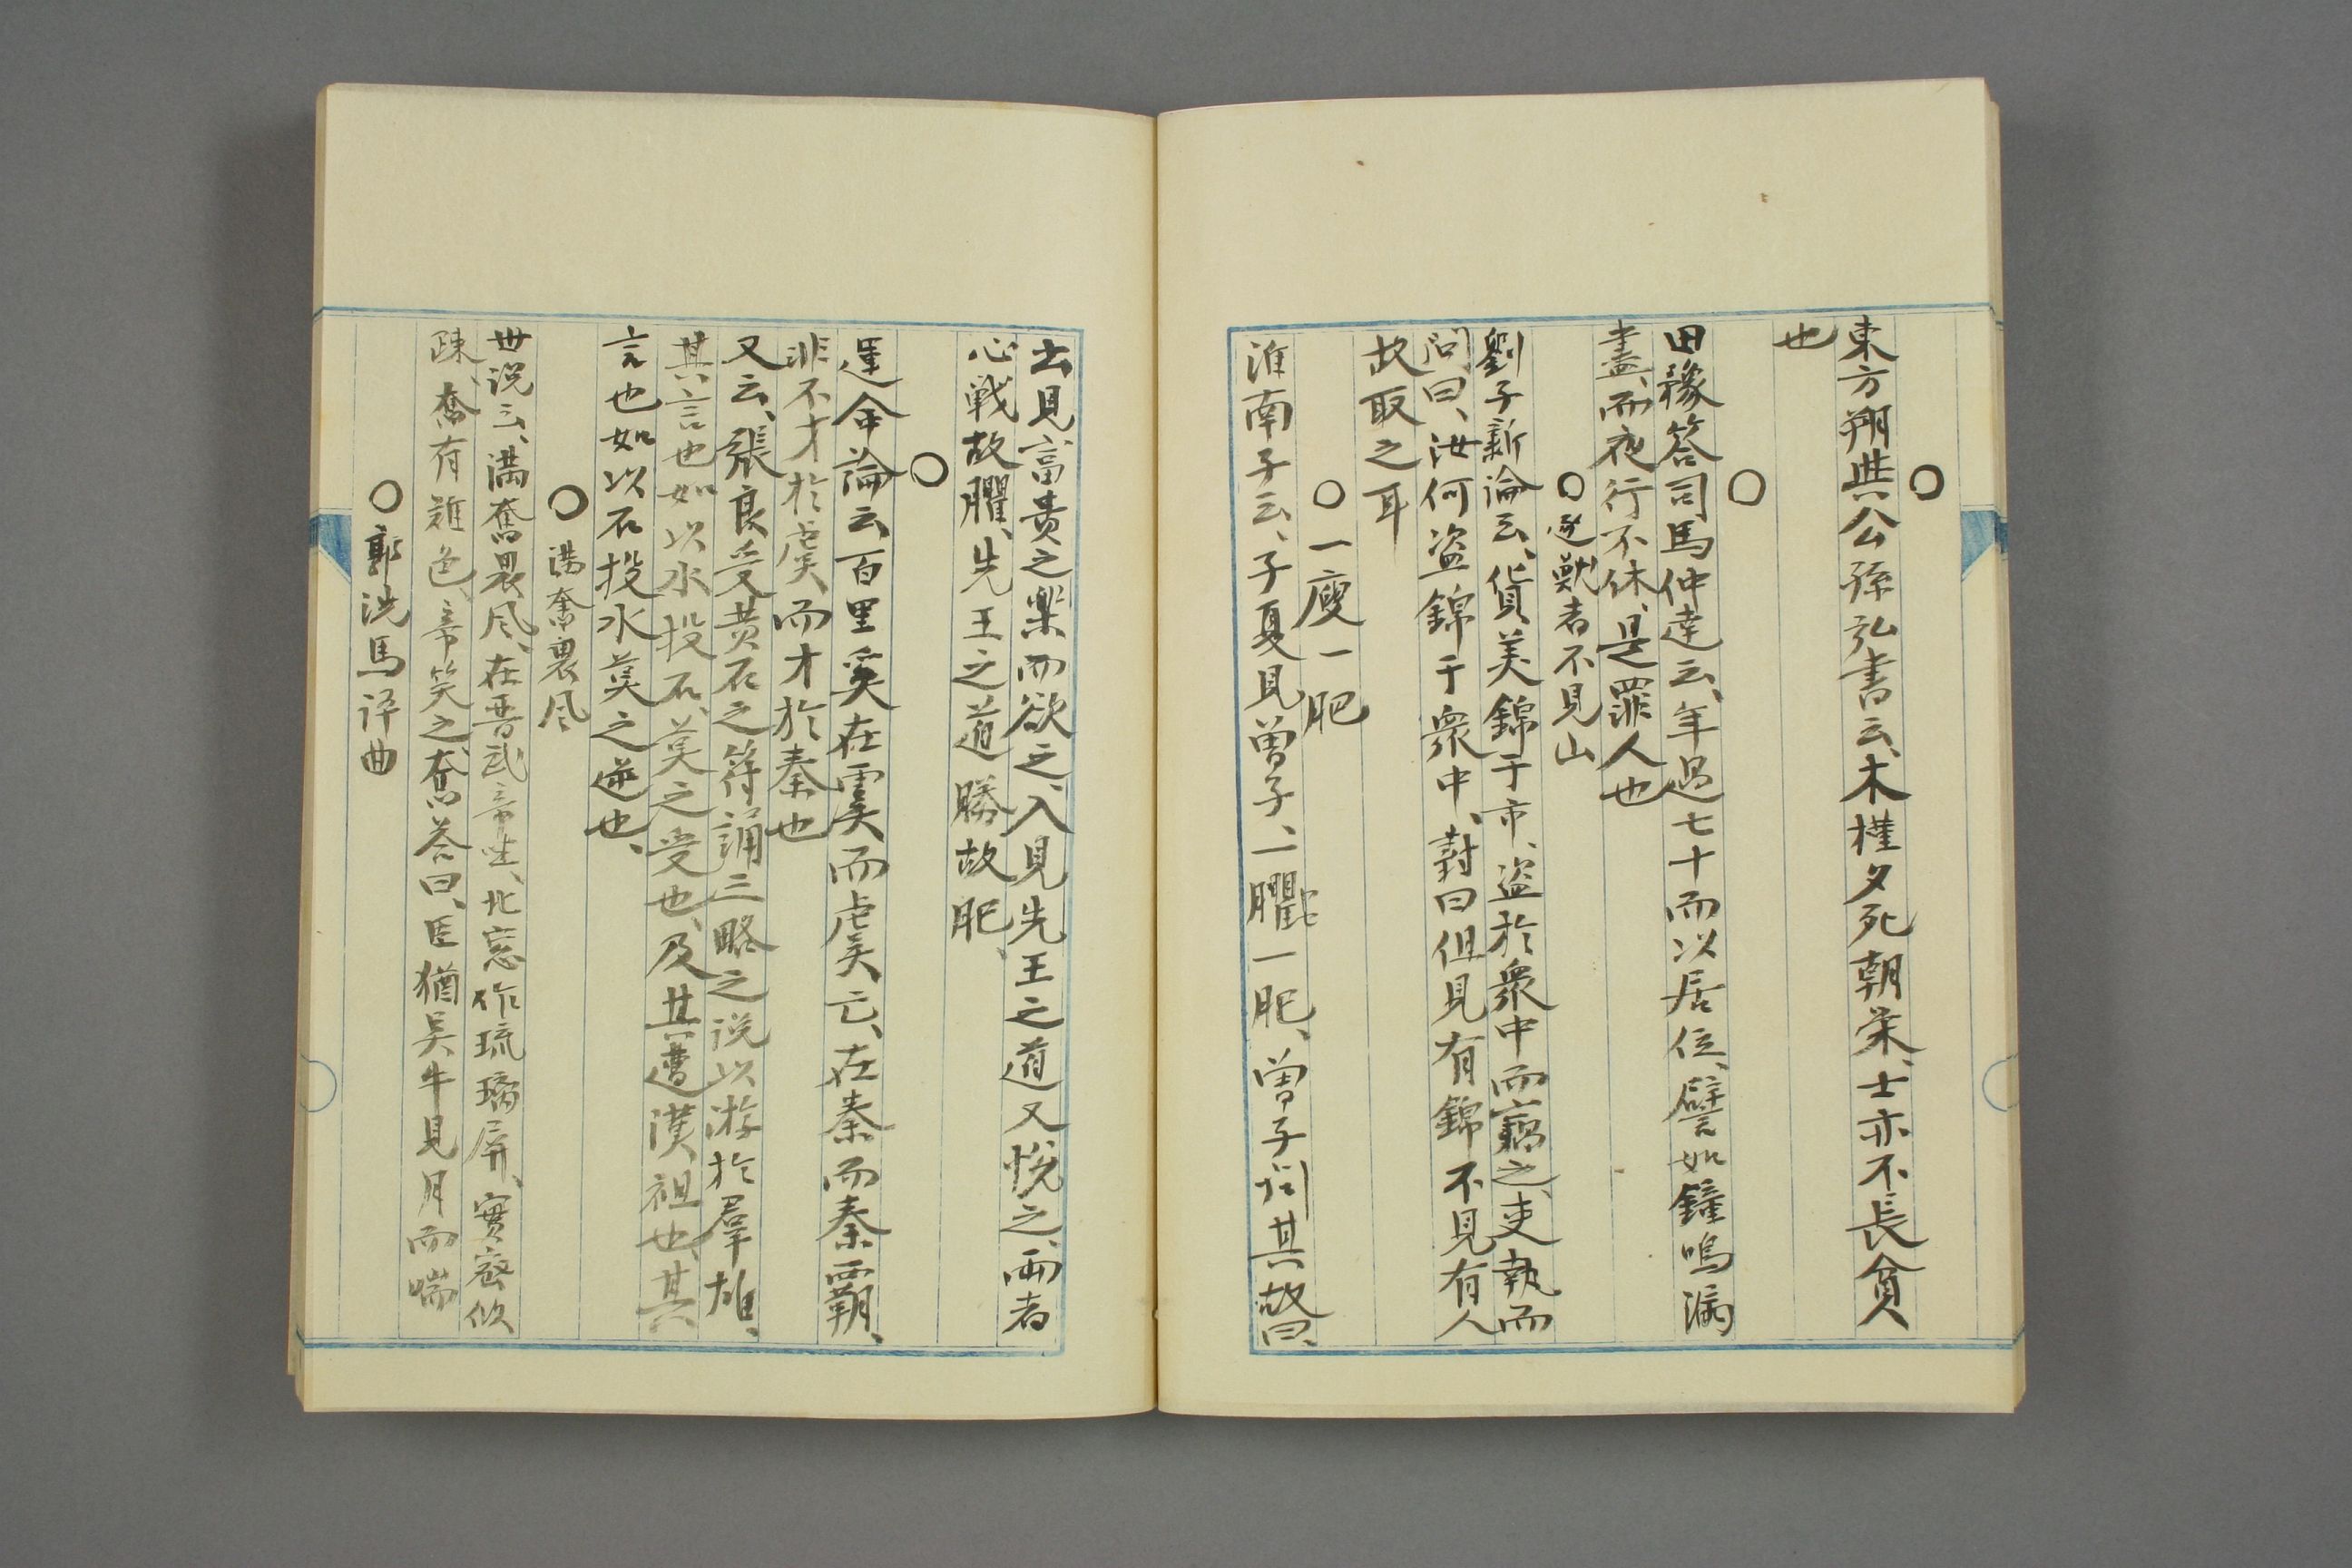 ○
東方朔與公孫弘書云、木槿夕死朝栄、士亦不長貧
也
○
田豫答司馬仲達云、年過七十而以居位、譬如鐘鳴漏
盡、而夜行不休、是罪人也
○逐獸者不見山
劉子新論云、貨美錦于市、盗於衆中而竊之、吏執而
問曰、汝何盗錦于衆中、對曰但見有錦不見有人
故取之耳
○一瘦一肥
淮南子云、子夏見曽子、一臞一肥、曽子問其故曰、
出見富贵之楽而欲之、入見先王之道又悦之、両者
心戦故臞、先王之道勝故肥、
○
運命論云、百里奚在虞而虞亡、在秦而秦覇、
非不才於虞、而才於秦也
又云、張良受黄石之符誦三略之説以游於羣雄、
其言也如以水投石、莫之受也、及其遭漢祖也、其
言也如以石投水莫之逆也、
○満奮畏风
世说云、満奮畏风、在晋武帝坐、北窓作琉璃屏、實密似
疎、奮有難色、帝笑之、奮答曰、臣猶吴牛見月而喘
○郭洗馬評曲